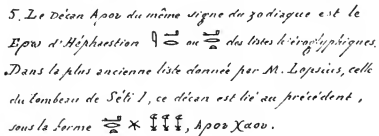 5. Le Décan Αρου du même signe du zodiaque est le
Ερω d'Héphaestion ou des listes hiéroglyphiques.
Dans la plus ancienne liste donnée par M. Lepsius, celle
du tombeau de Séti I, ce décan est lié au précédent,
sous la forme , Αρου Χαου.